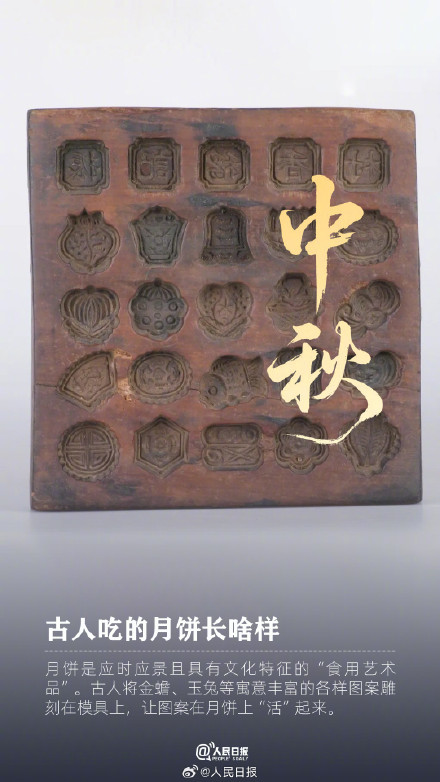 中秋
古人吃的月饼长啥样
月饼是应时应景且具有文化特征的“食用艺术
品”。古人将金蟾、玉兔等寓意丰富的各样图案雕
刻在模具上，让图案在月饼上“活”起来。
@人民日报
PEOPLE'S DAILY
@人民日报